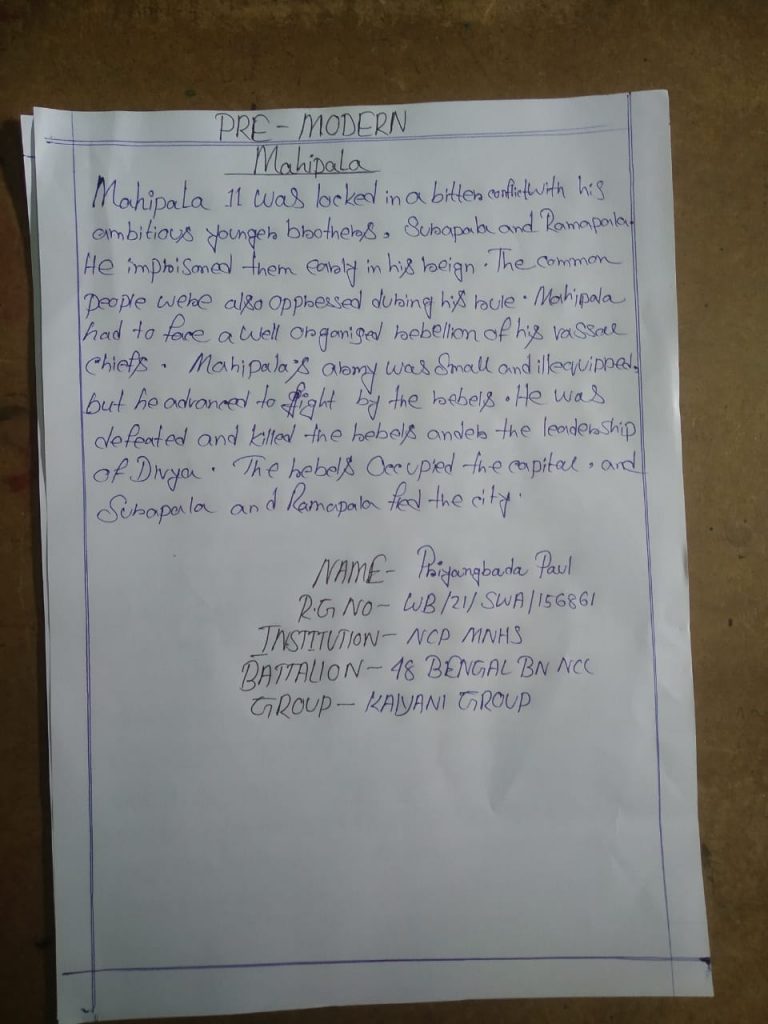 PRE - MODERN
Mahipala
Mahipala 11 was locked in a bitter conflict with his
ambitious younger brothers, Surapala and Ramapala.
He imprisoned them early in his reign. The common
people were also oppressed during his rule. Mahipala
had to face a well organised rebellion of his vassal
chiefs. Mahipala's army was small and illequipped,
but he advanced to fight by the rebels. He was
defeated and killed the rebels ander the leadership
of Divya. The rebels occupied the capital, and
Surapala and Ramapala fled the city.
NAME- Priyangbada Paul
R.G NO- WB/21/SWA/156861
INSTITUTION- NCP MNHS
BATTALION- 48 BENGAL BN NCC
GROUP- KALYANI GROUP